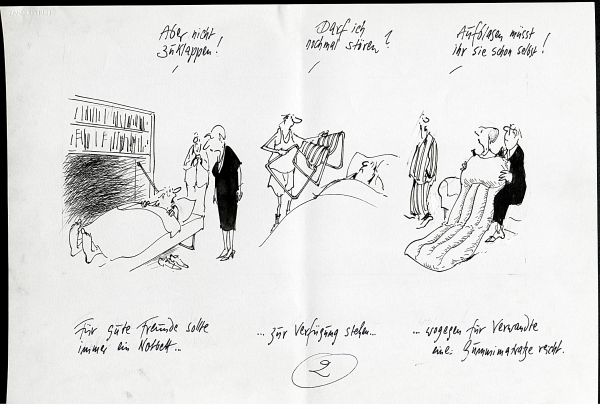 Aber nicht
zuklappen!
Darf ich
nochmal stören?
Aufblasen müsst
ihr sie schon selbst!
Für gute Freunde sollte
immer ein Notbett...
... zur Verfügung stehen...
... wogegen für Verwandte
eine Gummimatratze reicht.
2